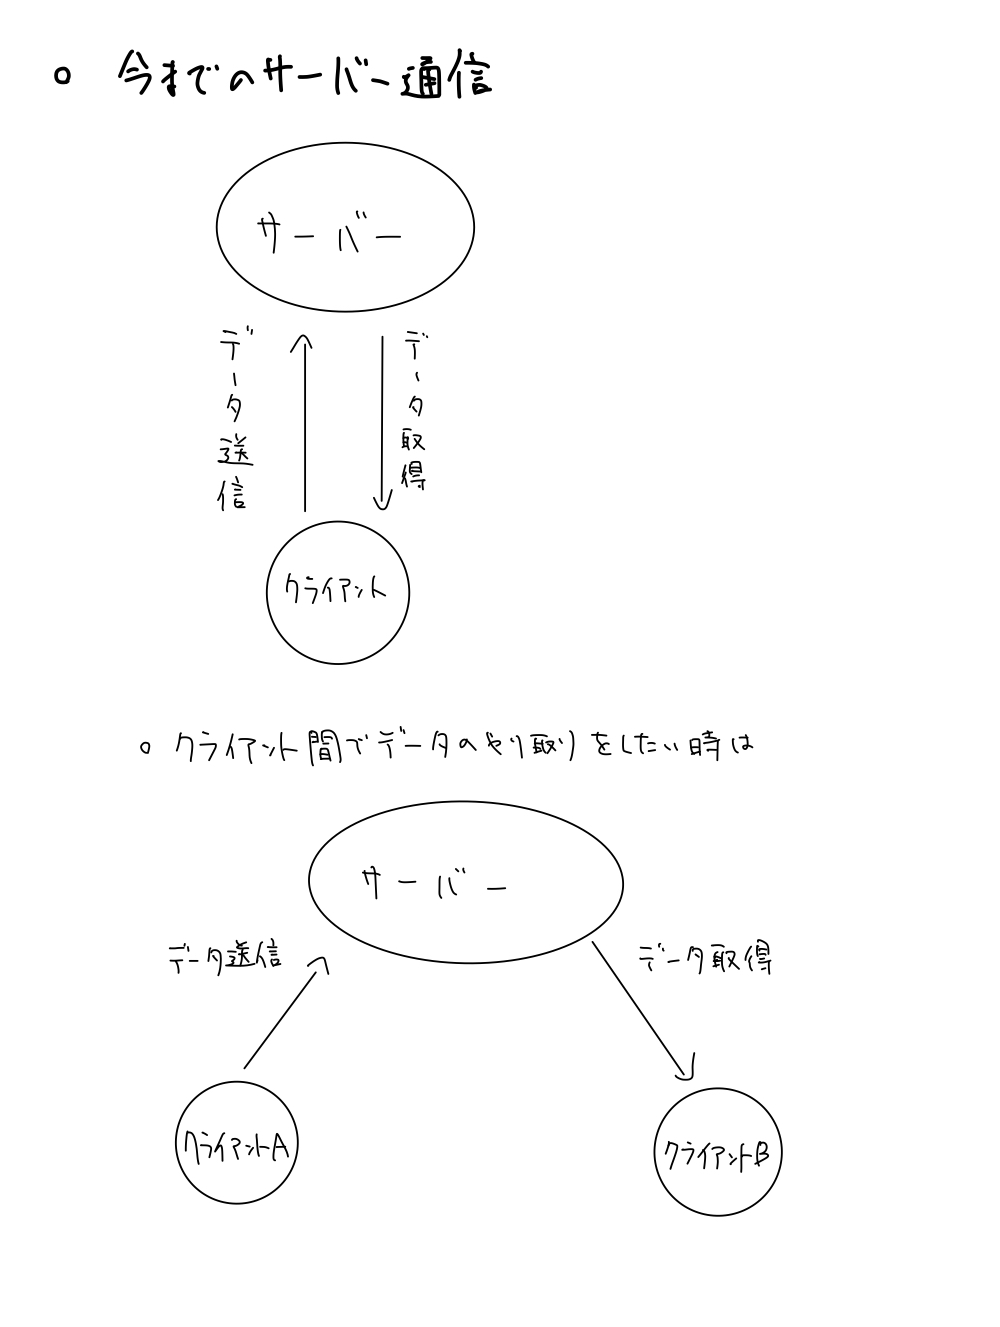 ○ 今までのサーバー通信
サーバー
データ送信
データ取得
クライアント
○ クライアント間でデータのやり取りをしたい時は
サーバー
データ送信
データ取得
クライアントA
クライアントB